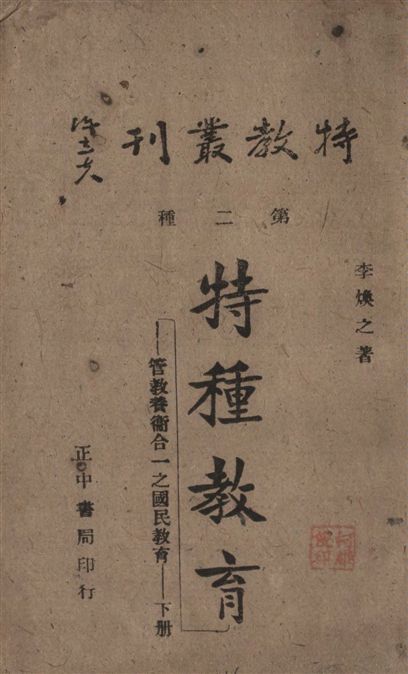 特教叢刊
第二種
李煥之著
特種教育
——管教養衛合一之國民教育——下册
正中書局印行